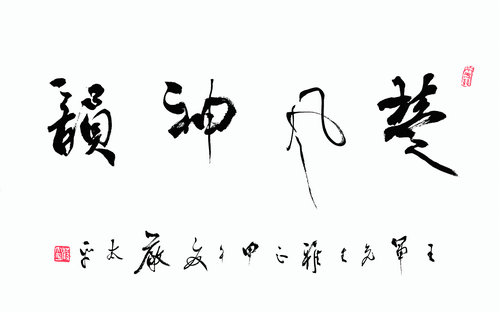 楚风神韻
王軍先生雅正甲午夏嚴太平